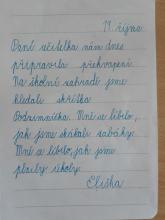 19. října
Paní učitelka nám dnes
připravila překvapení.
Na školní zahradě jsme
hledali skřítka
Podzimníčka. Mně se líbilo,
jak jsme skákali žabáky.
Mně se líbilo, jak jsme
plnily úkoly.
Eliška